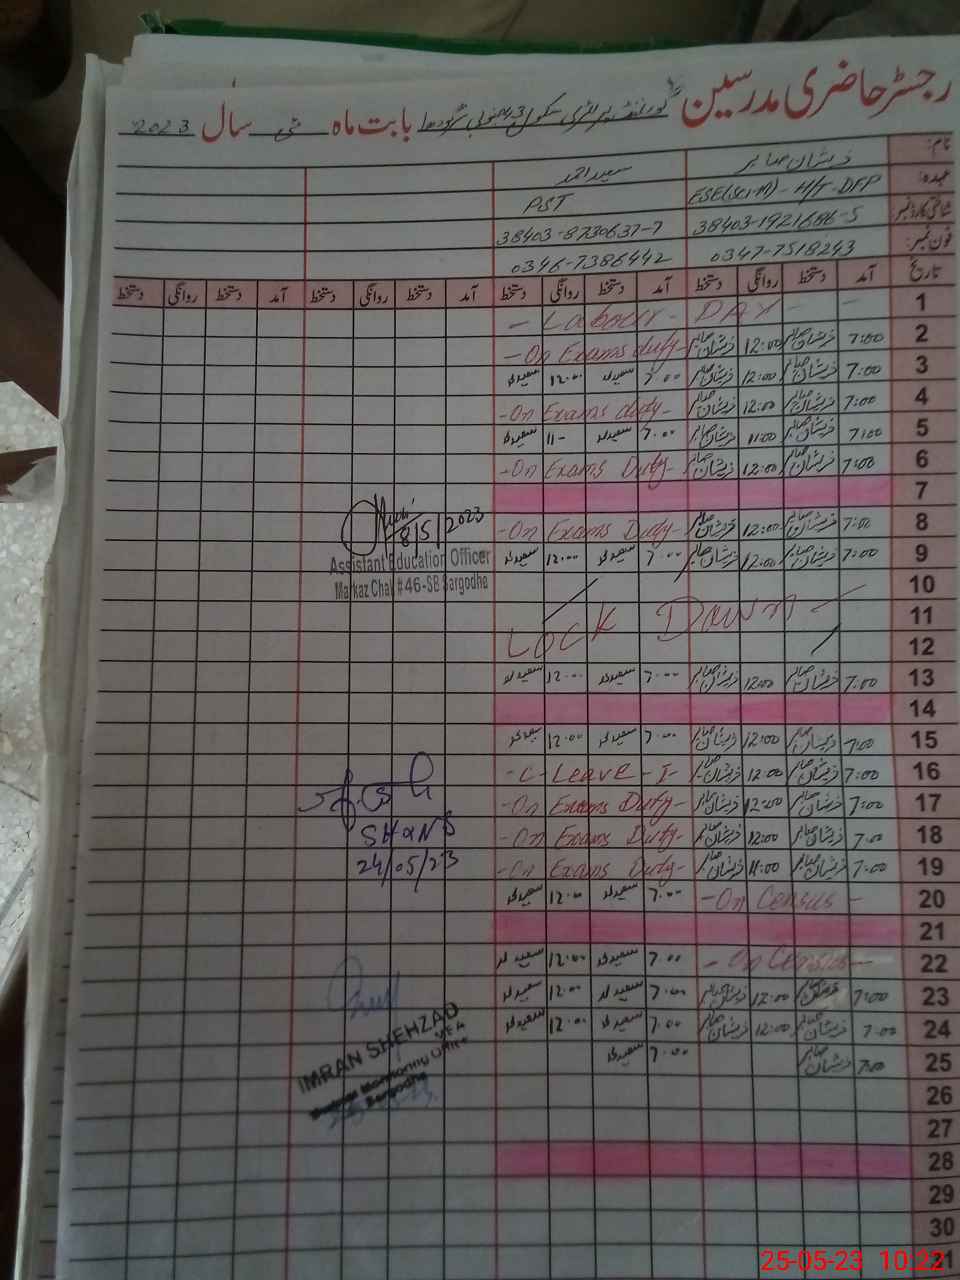 رجسٹر حاضری مدرسین گورنمنٹ پرائمری سکول سرگودھا بابت ماہ مئی سال 2023
نام: ذیشان صابر سعید احمد
عہدہ: ESE(Sci-M) - H/T - DFP PST
شناختی کارڈ نمبر 38403-1921686-5 38403-8730637-7
فون نمبر: 0347-7518243 0346-7386442
تاریخ آمد دستخط روانگی دستخط آمد دستخط روانگی دستخط آمد دستخط روانگی دستخط آمد دستخط روانگی دستخط
1 - Labour - DAY -
2 7:00 ذیشان صابر 12:00 ذیشان صابر -On Exams duty-
3 7:00 ذیشان صابر 12:00 ذیشان صابر 7.00 سعید احمد 12.00 سعید احمد
4 7:00 ذیشان صابر 12:00 ذیشان صابر -On Exams duty-
5 7:00 ذیشان صابر 11:00 ذیشان صابر 7.00 سعید احمد 11- سعید احمد
6 7:00 ذیشان صابر 12:00 ذیشان صابر -On Exams Duty-
7
8 7:00 ذیشان صابر 12:00 ذیشان صابر -On Exams Duty-
8/5/2023
9 7:00 ذیشان صابر 12:00 ذیشان صابر 7.00 سعید احمد 12.00 سعید احمد
Assistant Education Officer
Markaz Chak #46-SB Sargodha
10
11 LOCK Dawn
12
13 7.00 ذیشان صابر 12:00 ذیشان صابر 7.00 سعید احمد 12.00 سعید احمد
14
15 7:00 ذیشان صابر 12:00 ذیشان صابر 7.00 سعید احمد 12.00 سعید احمد
16 7:00 ذیشان صابر 12:00 ذیشان صابر -C-Leave-I-
17 7:00 ذیشان صابر 12:00 ذیشان صابر -On Exams Duty-
18 7:00 ذیشان صابر 12:00 ذیشان صابر -On Exams Duty-
24/05/23
19 7:00 ذیشان صابر 11:00 ذیشان صابر -On Exams Duty-
20 -On Census- 7.00 سعید احمد 12.00 سعید احمد
21
22 -On Census- 7.00 سعید احمد 12.00 سعید احمد
23 7:00 ذیشان صابر 12:00 ذیشان صابر 7.00 سعید احمد 12.00 سعید احمد
24 7:00 ذیشان صابر 12:00 ذیشان صابر 7.00 سعید احمد 12.00 سعید احمد
25 7:00 ذیشان صابر 7.00 سعید احمد
IMRAN SHEHZAD
MEA
Monitoring Officer
Sargodha
26
27
28
29
30
31
25-05-23 10:22